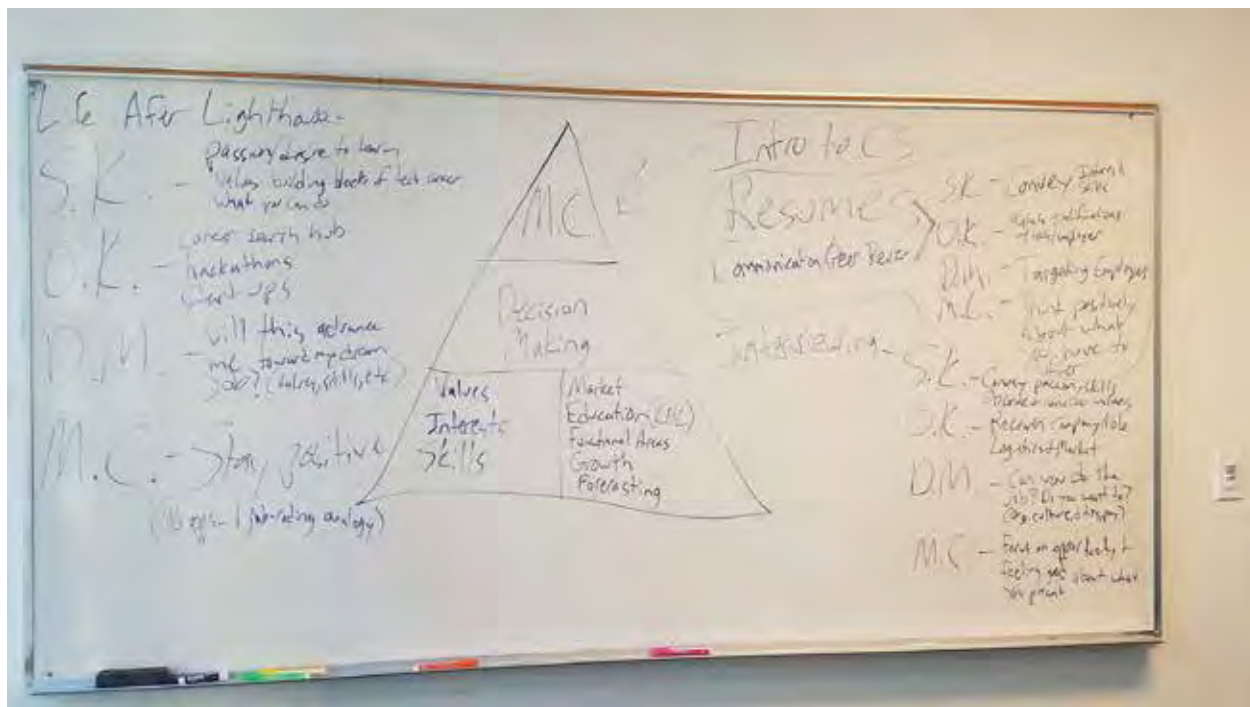 Life Afer Lighthouse-
S.K. - Passion/desire to learn
Values building blocks of tech career
what you can do
O.K. - career search hub
hackathons
start-ups
D.M. - will this advance
me toward my dream
job? (values, skills, etc)
M.C. - Stay positive
analogy)
MC
Decision
Making
Values
Interests
Skills
Market
Education
Functional Areas
Growth
Forecasting
Intro to CS
Resumes
Communication Peer Review
S.K. - Convey
O.K. -
D.M. - Targeting Employer
M.C. - Think positively
about what
you have to
offer
Interviewing -
S.K. - Convey passion, skills
values
O.K. - Research company/role
D.M. - Can you do the
job? Do you want to?
M.C - Focus on opportunity +
feeling good about what
you present